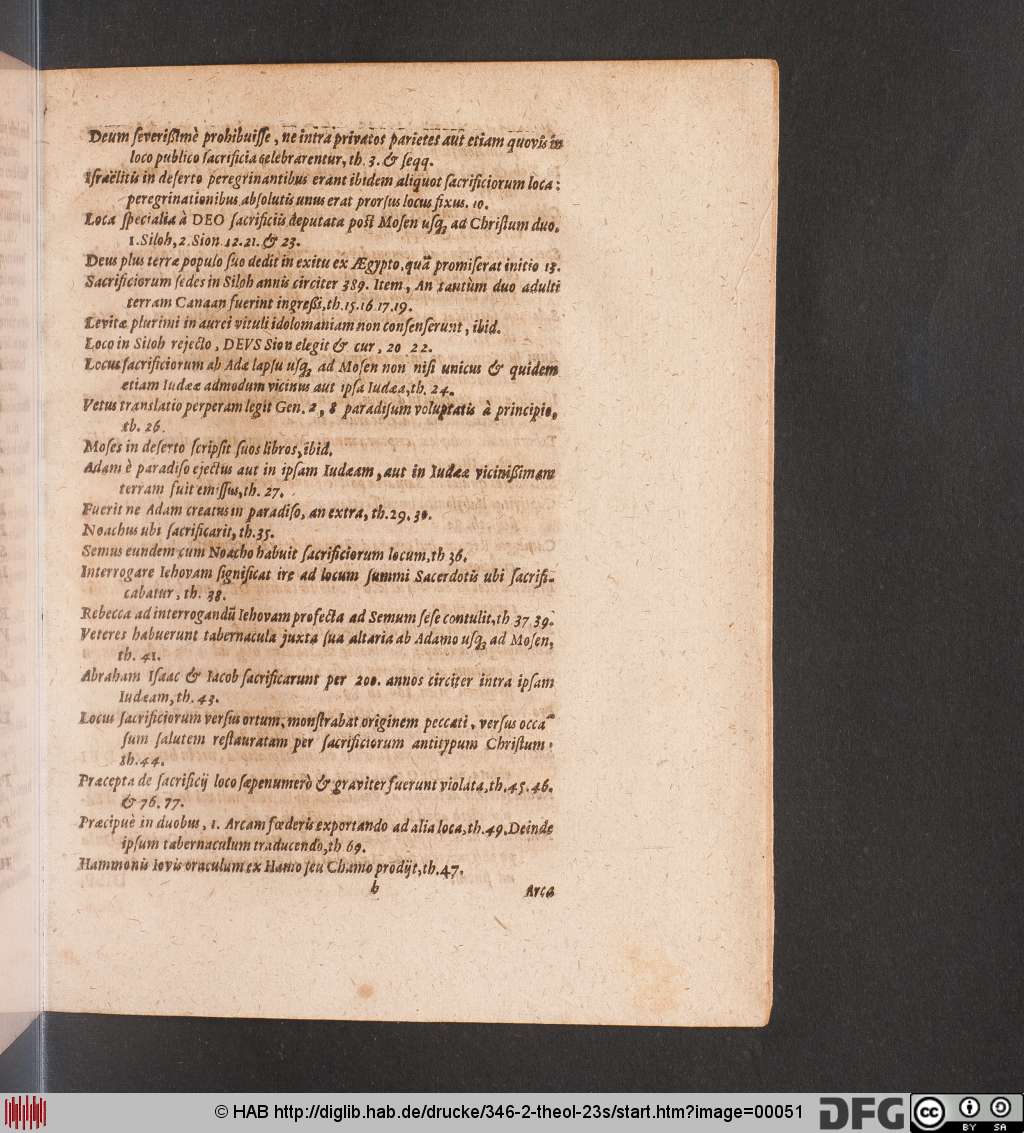 Deum ſeverißimè prohibuiſſe, ne intra privatos parietes aut etiam quovis in
loco publico ſacrificia celebrarentur, th. 3. & ſeqq.
Iſraëlitis in deſerto peregrinantibus erant ibidem aliquot ſacrificiorum loca:
peregrinationibus abſolutis unus erat prorſus locus fixus. 10.
Loca ſpecialia à DEO ſacrificiis deputata poſt Moſen uſq; ad Chriſtum duo.
1. Siloh, 2. Sion 12. 21. & 23.
Deus plus terræ populo ſuo dedit in exitu ex Ægypto, quã promiſerat initio 13.
Sacrificiorum ſedes in Siloh annis circiter 389. Item, An tantùm duo adulti
terram Canaan fuerint ingreßi, th. 15. 16 17. 19.
Levitæ plurimi in aurei vituli idolomaniam non conſenſerunt, ibid.
Loco in Siloh rejecto, DEVS Sion elegit & cur, 20 22.
Locus ſacrificiorum ab Adæ lapſu uſq; ad Moſen non niſi unicus & quidem
etiam Iudææ admodum vicinus aut ipſa Iudæa, th. 24.
Vetus translatio perperam legit Gen. 2, 8 paradiſum voluptatis à principio,
th. 26.
Moſes in deſerto ſcripſit ſuos libros, ibid.
Adam è paradiſo ejectus aut in ipſam Iudæam, aut in Iudææ vicinißimam
terram fuit emiſſus, th. 27.
Fuerit ne Adam creatus in paradiſo, an extra, th. 29. 30.
Noachus ubi ſacrificarit, th. 35.
Semus eundem cum Noacho habuit ſacrificiorum locum, th 36.
Interrogare Iehovam ſignificat ire ad locum ſummi Sacerdotis ubi ſacrifi-
cabatur, th. 38.
Rebecca ad interrogandũ Iehovam profecta ad Semum ſeſe contulit, th 37 39.
Veteres habuerunt tabernacula juxta ſua altaria ab Adamo uſq; ad Moſen,
th. 41.
Abraham Iſaac & Iacob ſacrificarunt per 200. annos circiter intra ipſam
Iudæam, th. 43.
Locus ſacrificiorum verſus ortum, monſtrabat originem peccati, verſus occa-
ſum ſalutem reſtauratam per ſacrificiorum antitypum Chriſtum,
th. 44.
Præcepta de ſacrificij loco ſæpenumerò & graviter fuerunt violata, th. 45. 46.
& 76. 77.
Præcipuè in duobus, 1. Arcam fœderis exportando ad alia loca, th. 49. Deinde
ipſum tabernaculum traducendo, th 69.
Hammonis Iovis oraculum ex Hamo ſeu Chamo prodijt, th. 47.
b Arca
© HAB http://diglib.hab.de/drucke/346-2-theol-23s/start.htm?image=00051
DFG
cc BY SA